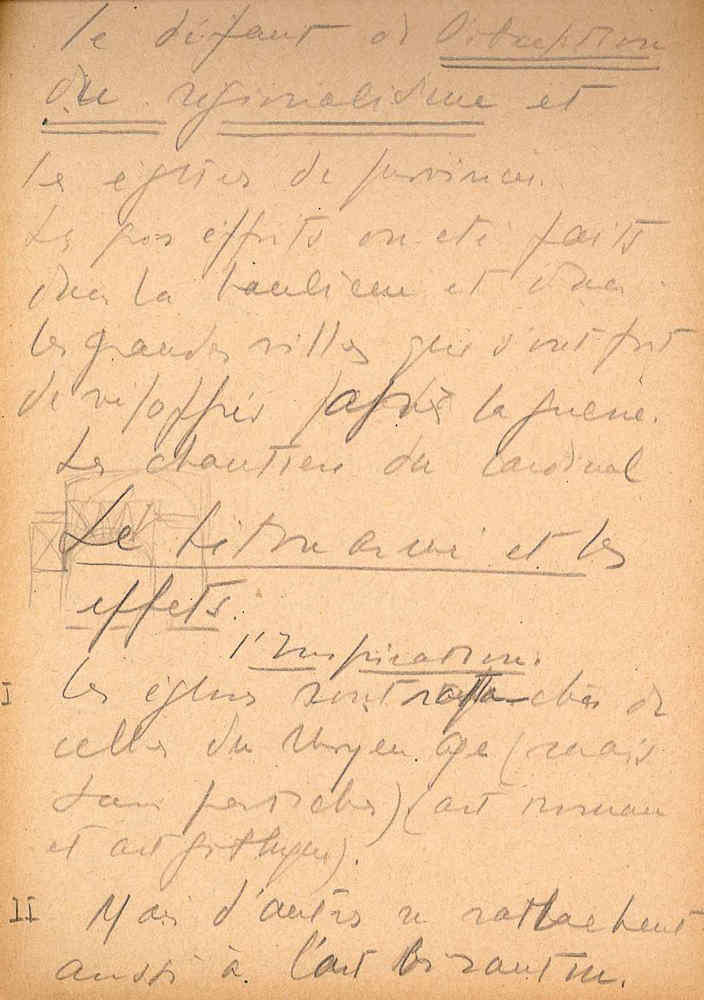 le défaut de l'adaptation
du régionalisme et
les églises de province.
Les gros efforts on été faits
dans la banlieue et dans
les grandes villes qui s'ont fort
developpées après la guerre.
Les chantiers du cardinal
Le béton armé et les
effets.
l'Inspiration.
I Les églises sont rattachées de
celles du Moyen age (mais
sans pastiches) (art roman
et art gothique).
II Mais d'autres se rattachent
aussi à l'art Bizantin.